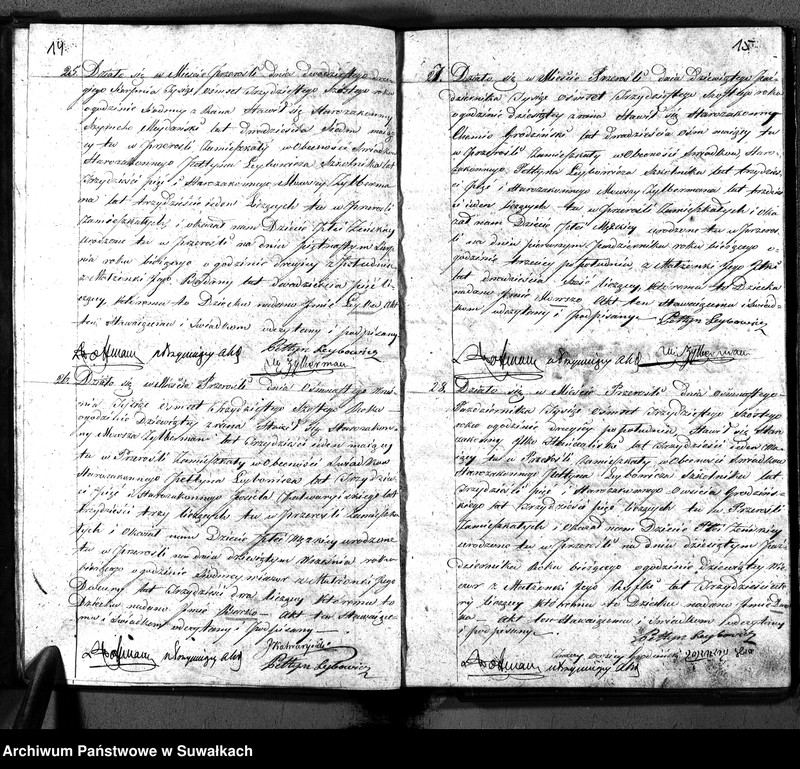 14.
25. Działo się w Mieście Przerośli dnia dwudziestego
Sierpnia Tysiąc Osmset Trzydziestego Szóstego roku
o godzinie siódmey z rana Stawił się Starozakonny
Szymcho Meydanski lat Dwadzieścia Siedm maiący
tu w Przerośli Zamieszkały w Obecności Swiadków
Starozakonnego Peltyna Leybowicza Szkolnika lat
Trzydzieści pięć i Starozakonnego Mowszy Zylberma
na lat trzydzieście ieden Liczących tu w Przerośli
Zamieszkałych i okazał nam Dziecie Płci Zenskiey
urodzone tu w Przerośli na dniu piętnastym
roku bieżącego o godzinie drugiey z południa
z Małżonki Jego lat Dwadzieścia pięć li-
czącey, któremu to Dziecku nadano Imie Leyba Akt
ten Stawaiącemu i Swiadkom odczytany i podpisany
Hoffmann utrzymuiący Akta Peltyn Leybowicz
M. Zylberman
26. Działo się w Mieście Przerośli dnia Osmnastego Wrze
śnia Tysiąc Osmset Trzydziestego Szóstego Roku
o godzinie Dziewiątey z rana Stawił Się Starozakon-
ny Mowsza Zylberman lat Trzydzieści ieden maiący
tu w Przerośli Zamieszkały w Obecności Swiadków
Starozakonnego Peltyna Leybowicza lat Trzydzie-
ści Pięć i Starozakonnego Josiela Kalwaryiskiego lat
trzydzieści trzy liczących tu w Przerośli Zamieszka
łych i Okazał nam Dziecie Płci Męzkiey urodzone
tu w Przerośli na dniu dziewiątym Września roku
bieżącego o godzinie wieczor z Małżonki Jego
lat Trzydzieści dwa liczącey któremu to
Dziecku nadano Imie Berko Akt ten Stawaiące-
mu i Swiadkom odczytany i Podpisany
Hoffmann utrzymuiący Akta
Peltyn Leybowicz
15.
27. Działo się w Mieście Przerośli dnia Dziewiątego Paź
dziernika Tysiąc Osmset Trzydziestego Szóstego roku
o godzinie dziewiątey z rana Stawił się Starozakonny
Chaim Grodzinski lat Dwadzieścia Osm maiący tu
w Przerośli Zamieszkały w Obecności Swiadków Staro-
zakonnego Peltyna Leybowicza Szkolnika lat trzydzie
ści Pięć i Starozakonnego Mowszy Zylbermana lat trzdzie
ści ieden liczących tu w Przerośli Zamieszkałych i Oka
zał nam Dziecie Płci Męzkiey urodzone tu w Przeroś
li na dniu pierwszym Października roku bieżącego o-
godzinie trzeciey po południu z Małżonki Jego
lat dwadzieścia Sześć liczącey któremu to Dziecku
nadano Imie Akt ten Stawaiącemu i Swiad-
kom odczytany i podpisany Peltyn Leybowicz
Hoffmann utrzymuiący Akta M. Zylberman
28. Działo się w Mieście Przerośli dnia Osmnastego
Października Tysiąc Osmset Trzydziestego Szóstego
roku o godzinie drugiey po południu, Stawił się Staro
zakonny lat Trzydzieści ieden Ma-
iący tu w Przerośli Zamieszkały w Obecności Swiadków
Starozakonnego Peltyna Leybowicza Szkolnika lat
Trzydzieści pięć i Starozakonnego Owsieia Grodzins-
kiego lat Trzydzieści liczących tu w Przerośli
Zamieszkałych i Okazał nam Dziecie Płci Zenskiey
urodzone tu w Przerośli na dniu dziewiątym Paź
dziernika Roku bieżącego o godzinie Dziewiątey Wie
czor z Małżonki Jego lat Trzydzieści
liczącey któremu to Dziecku nadano Imie
Akt ten Stawaiącemu i Swiadkom odczytany
i podpisany Peltyn Leybowicz
Hoffmann utrzymuiący Akta
Archiwum Państwowe w Suwałkach